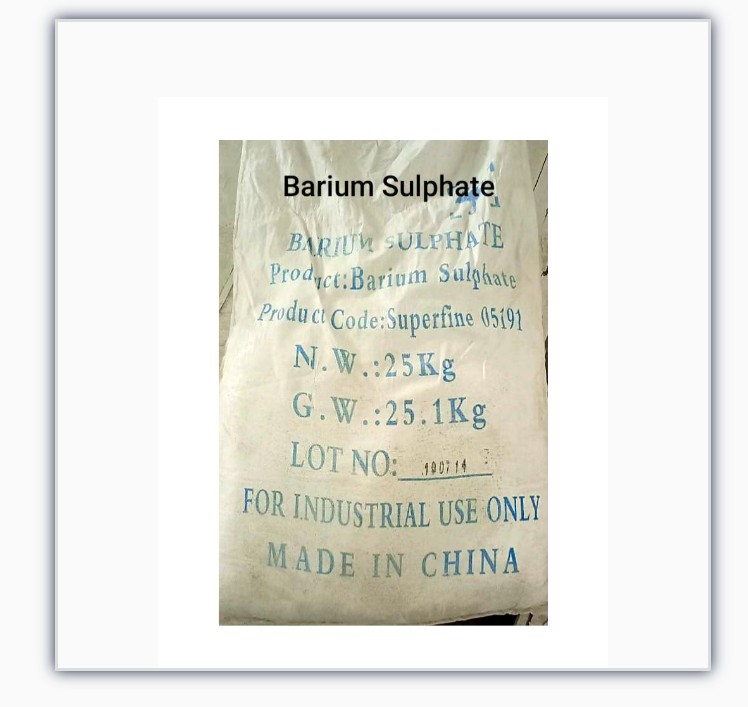 Barium Sulphate
BARIUM SULPHATE
Product:Barium Sulphate
Product Code:Superfine 05191
N.W.:25Kg
G.W.:25.1Kg
LOT NO: 190714
FOR INDUSTRIAL USE ONLY
MADE IN CHINA